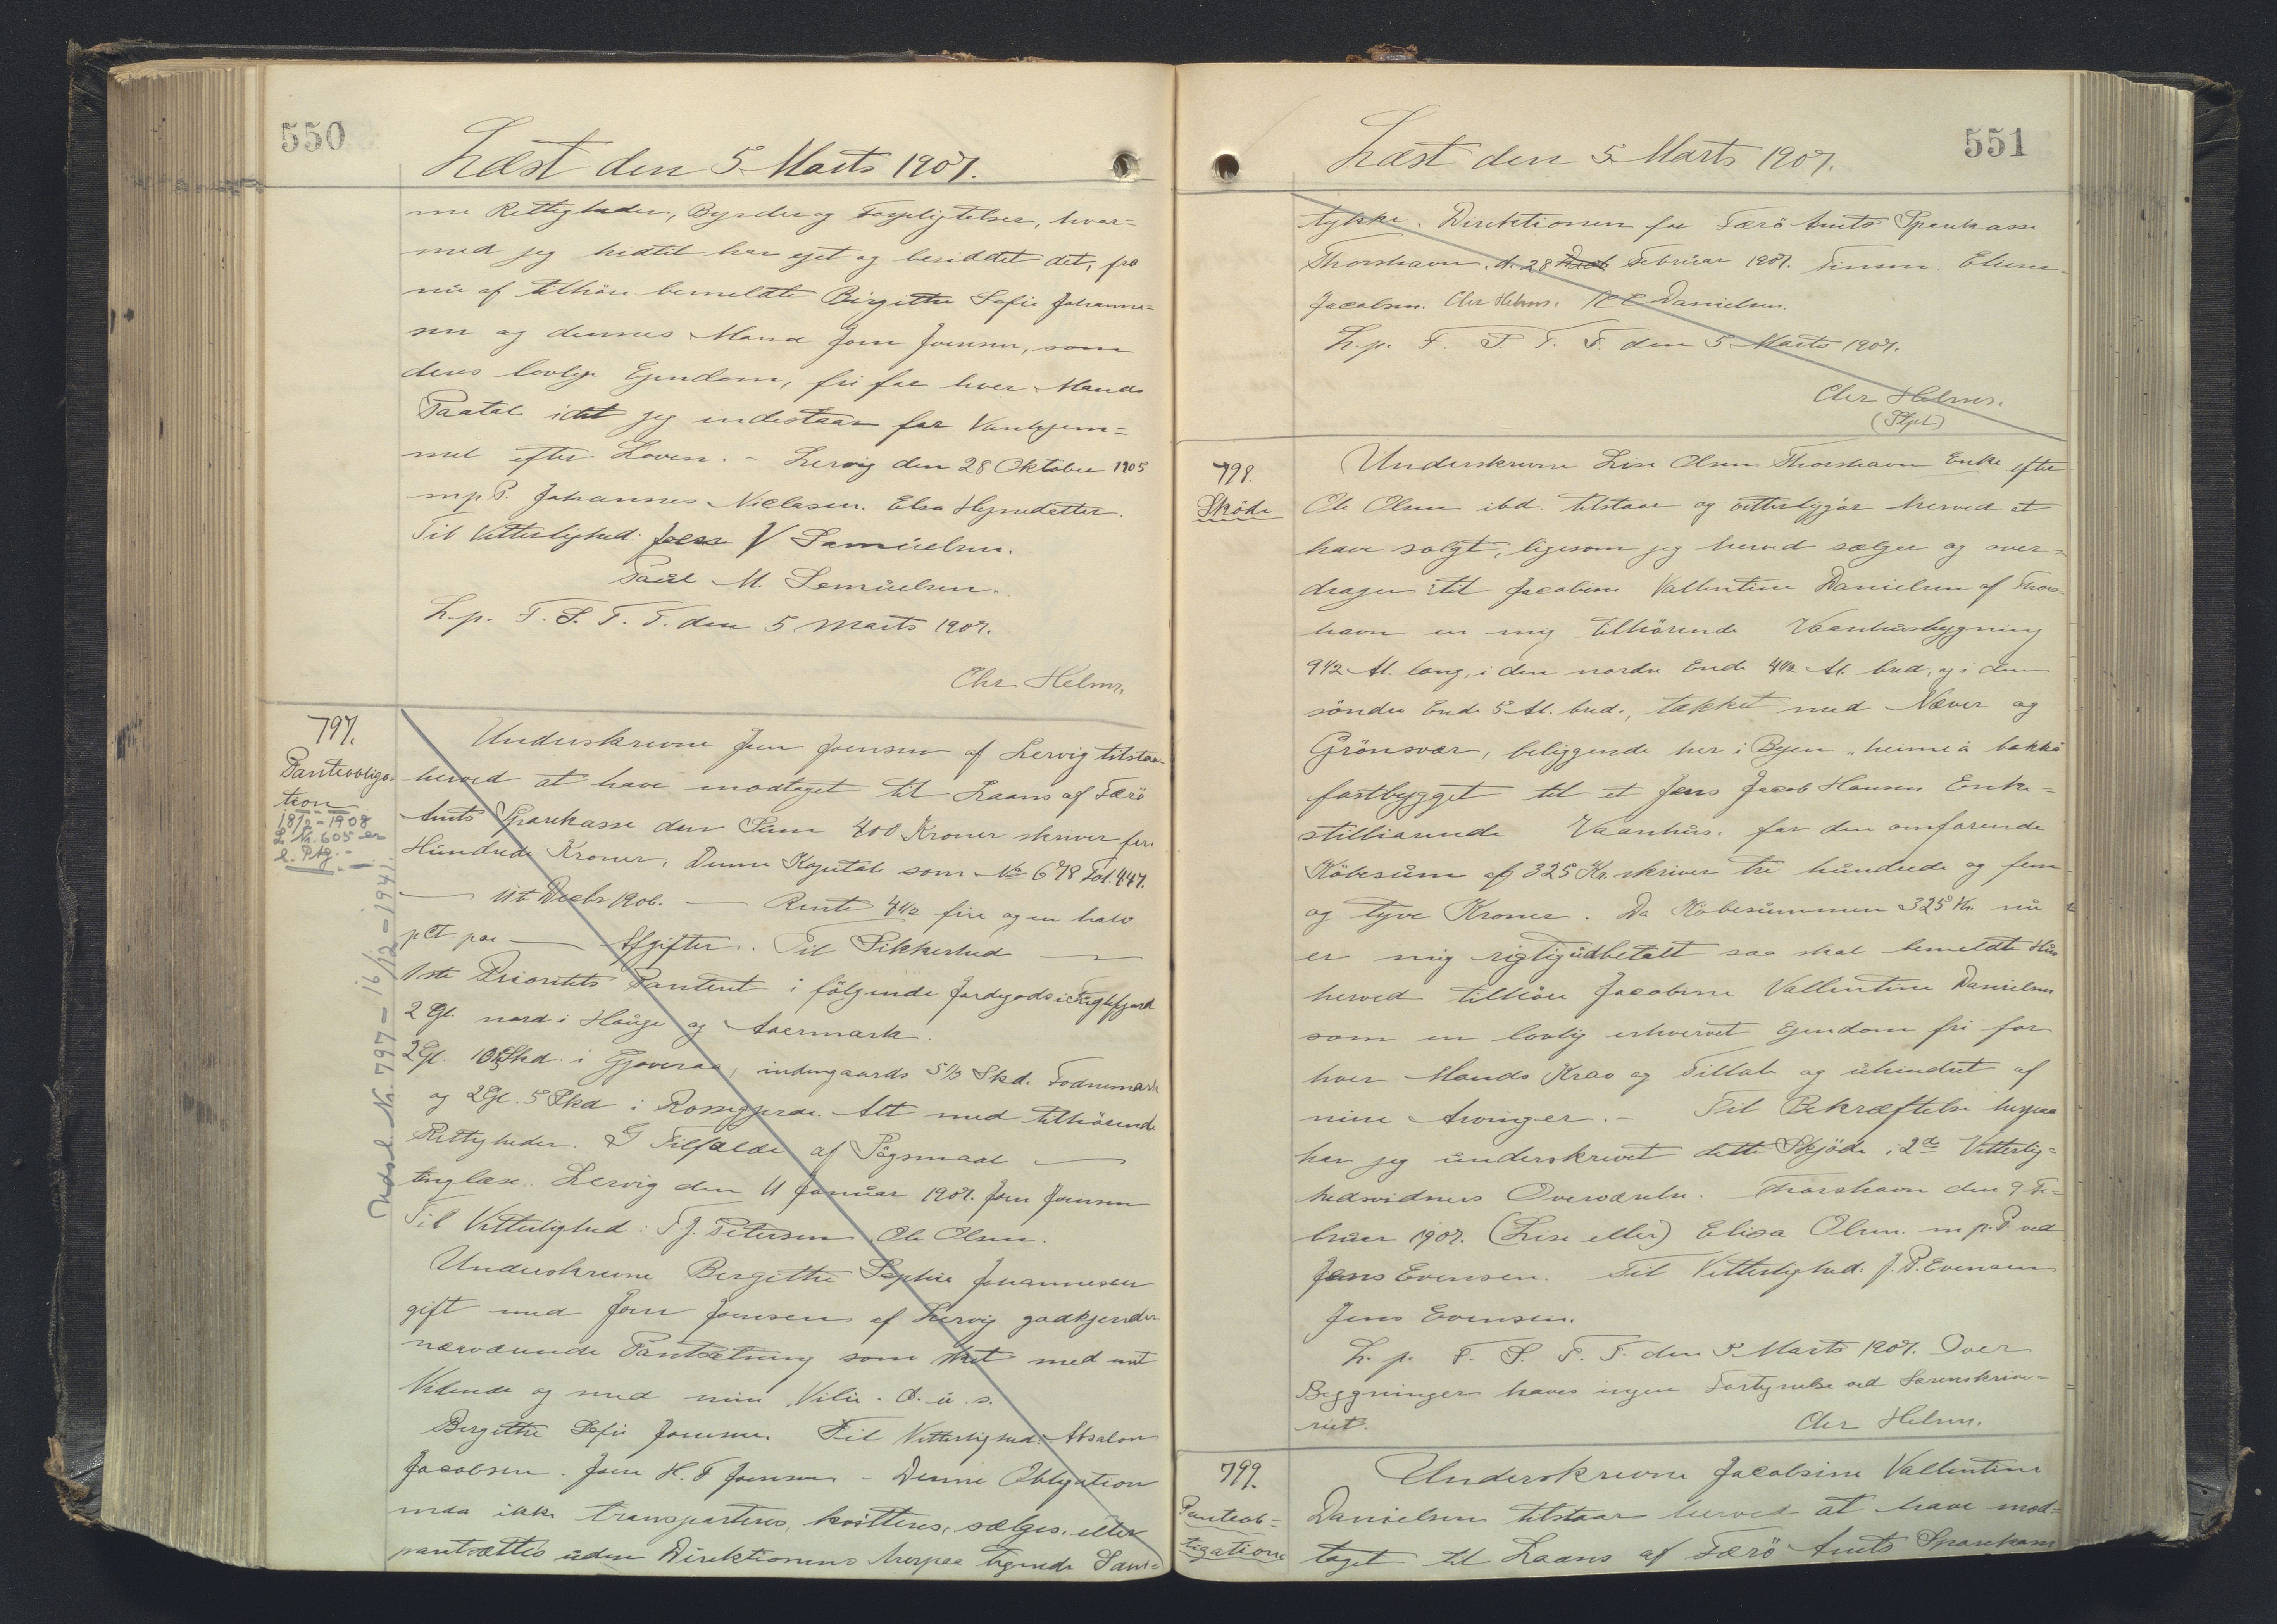 550
Læst den 5 Marts 1907.
me Rettigheder, Byrder og Forpligtelser, hvor=
med jeg hidtil har ejet og besiddet det, fra
nu af tilhøre bemeldte Birgitte Sofie Johanne=
sen og dennes Mand Joen Joensen, som
deres lovlige Ejendom, fri for hver Mands
Paatale idet jeg indestaar for Vanhjem=
mel efter Loven. - Lervig den 28 Oktober 1905
m.p.P. Johannes Niclasen. Elsa Hejnedatter.
Til Vitterlighed: V Samuelsen.
Paul M. Semuelsen.
L.p. F. S. T. T. den 5 Marts 1907.
Chr Helms,
797.
Panteobliga=
tion
18/2-1908
L Nr. 605 er
l. Ptg.-
Udsl. Nr. 797 - 16/12-1941.
Underskrevne Joen Joensen af Lervig tilstaar
herved at have modtaget til Laans af Færø
Amts Sparekasse den Sum 400 Kroner skriver fire
Hundrede Kroner. Denne Kapital som No 678 Fol. 447.
— ut Decbr 1906. — Rente 4 1/2 fire og en halv
pCt paa — Afgifter. Til Sikkerhed —
1ste Prioritets Panteret i følgende Jordegods i Fuglefjord
2 Gl. nord i Houge og Aaermark.
2 Gl. Skd. i Gjoveraa, indengaards 5 1/3 Skd. Fodnemark
og 2 Gl. 5 Skd i Rossegjerde. Alt med tilhørende
Rettigheder. I Tilfælde af Søgsmaal —
tinglæse. Lervig den 11 Januar 1907. Joen Joensen
Til Vitterlighed: T.J. Petersen. Ole Olsen.
Underskrevne Bergithe Sophie Johannesen
gift med Joen Joensen af Lervig godkjender
nærværende Pantsætning som sket med mit
Vidende og med min Vilie. D. u. s.
Bergithe Sofie Joensen. Til Vitterlighed: Absalon
Jacobsen. Joen H. F Joensen - Denne Obligation
maa ikke transporteres, kvitteres, sælges, eller
pantsættes uden Direktionens herpaa tegnede Sam=
551
Læst den 5 Marts 1907.
tykke. Direktionen for Færø Amts Sparekasse
Thorshavn, d. 28 Februar 1907.
Jacobsen. Chr Helms. Danielsen.
L.p. F. S. T. T. den 5 Marts 1907.
Chr Helms.
798.
Skøde
Underskrevne Lise Olsen Thorshavn Enke efter
Ole Olsen ibd. tilstaar og vitterliggør herved at
have solgt, ligesom jeg herved sælger og over=
drager til Jacobine Vallentine Danielsen af Thors=
havn en mig tilhørende Vaanhusbygning
9 1/2 Al. lang, i den nordre Ende 4 1/2 Al. bred, og i den
søndre Ende 5 Al. bred, tækket med Næver og
Grønsvær, beliggende her i Byen "heime á bakka
fastbygget til et Jens Jacob Hansens Enke
Vaanhus. for den omforende
Købesum af 325 Kr. skriver tre hundrede og fem
og tyve Kroner. Da Købesummen 325 Kr. nu
er mig rigtig udbetalt saa skal bemeldte Hus
herved tilhøre Jacobine Vallentine Danielsen
som en lovlig erhvervet Ejendom fri for
hver Mands Krav og Tiltale og uhindret af
mine Arvinger. - Til Bekræftelse herpaa
har jeg underskrevet dette Skjøde i 2de Vitterlig=
hedsvidners Overværelse. Thorshavn den 9 Fe=
bruar 1907. (Lise eller) Elisa Olsen m.p.P. ved
Jens Evensen. Til Vitterlighed: J.P. Evensen
Jens Evensen.
L. p. F. S. T. T. den 5 Marts 1907. Over
Byggninger haves ingen Fortegnelse ved Sorenskrive=
riet. Chr Helms.
799.
Panteob=
ligation
Underskrevne Jacobsine Vallentine
Danielsen tilstaar herved at have mod=
taget til Laans af Færø Amts Sparekasse